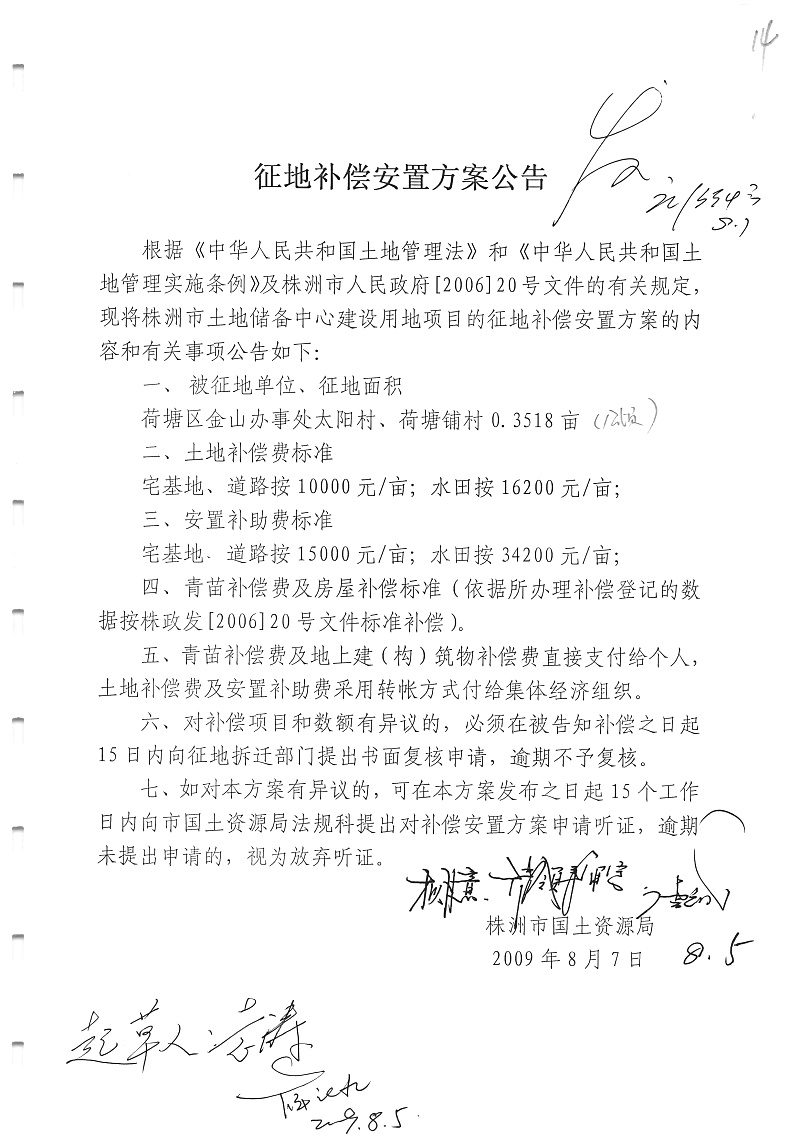 14
发
征地补偿安置方案公告
根据《中华人民共和国土地管理法》和《中华人民共和国土
地管理实施条例》及株洲市人民政府[2006]20号文件的有关规定，
现将株洲市土地储备中心建设用地项目的征地补偿安置方案的内
容和有关事项公告如下：
一、 被征地单位、征地面积
荷塘区金山办事处太阳村、荷塘铺村 0.3518 亩
二、土地补偿费标准
宅基地、道路按 10000 元/亩；水田按 16200 元/亩；
三、安置补助费标准
宅基地、道路按 15000 元/亩；水田按 34200 元/亩；
四、青苗补偿费及房屋补偿标准（依据所办理补偿登记的数
据按株政发[2006]20 号文件标准补偿）。
五、青苗补偿费及地上建（构）筑物补偿费直接支付给个人，
土地补偿费及安置补助费采用转帐方式付给集体经济组织。
六、对补偿项目和数额有异议的，必须在被告知补偿之日起
15 日内向征地拆迁部门提出书面复核申请，逾期不予复核。
七、如对本方案有异议的，可在本方案发布之日起 15 个工作
日内向市国土资源局法规科提出对补偿安置方案申请听证，逾期
未提出申请的，视为放弃听证。
株洲市国土资源局
2009 年 8 月 7 日
8.5
起草人：
2009.8.5.